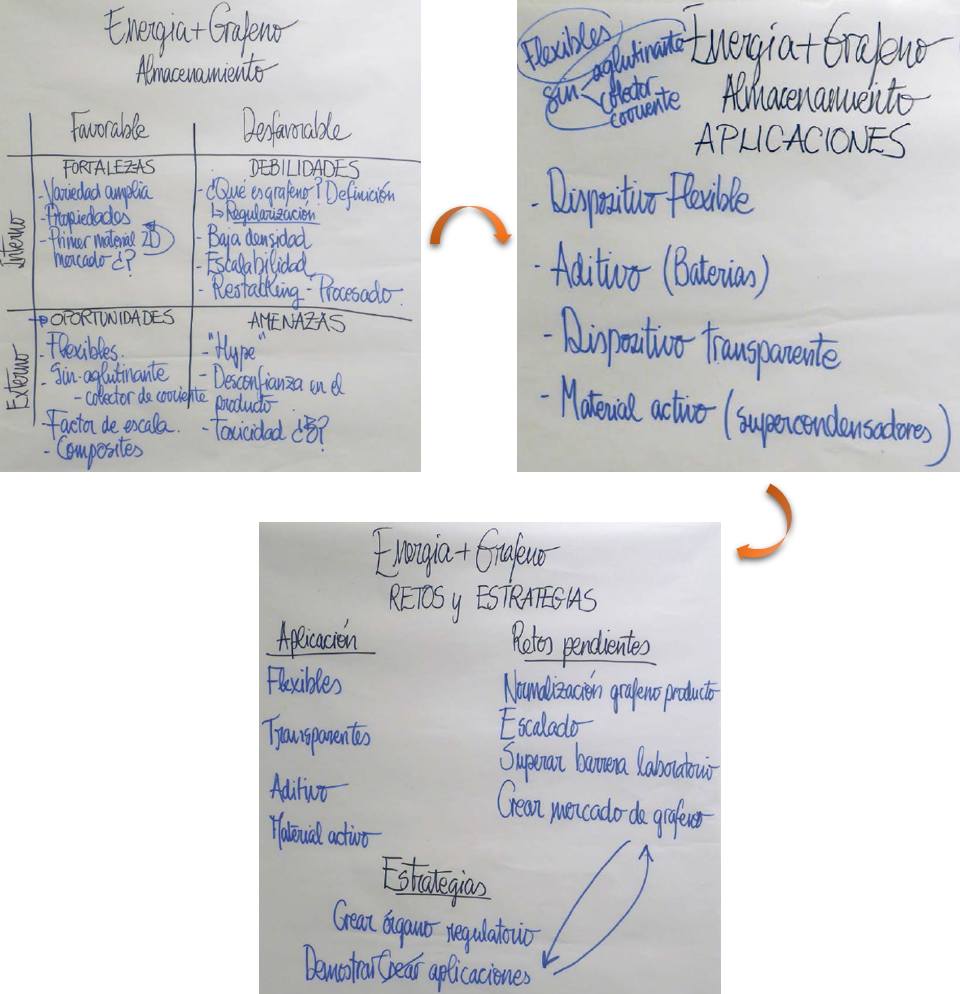 Energia + Grafeno
Almacenamiento
Favorable
Desfavorable
Interno
FORTALEZAS
- Variedad amplia
- Propiedades
- Primer material 2D
mercado ¿?
DEBILIDADES
- ¿Qué es grafeno? Definición
↳ Regularización
- Baja densidad
- Escalabilidad
- Restacking - Procesado.
Externo
→ OPORTUNIDADES
- Flexibles.
- Sin-aglutinante
- colector de corriente
- Factor de escala.
- Composites
AMENAZAS
- "Hype"
- Desconfianza en el
producto
- Toxicidad ¿?
Flexibles
Sin
aglutinante
colector
corriente
Energia + Grafeno
Almacenamiento
APLICACIONES
- Dispositivo Flexible
- Aditivo (Baterias)
- Dispositivo transparente
- Material activo (supercondensadores)
Energia + Grafeno
RETOS y ESTRATEGIAS
Aplicación
Flexibles
Transparentes
Aditivo
Material activo
Retos pendientes
Normalización grafeno producto
Escalado
Superar barrera laboratorio
Crear mercado de grafeno
Estrategias
Crear órgano regulatorio
Demostrar Crear aplicaciones